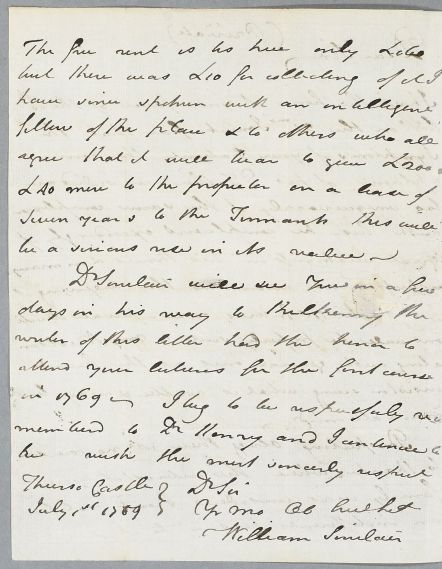 The free rent is as here only £160
but there was £10 for collecting of it I
have since spoken with an intelligent
fellow of the place & to others who all
agree that it will bear to give £200 or
£40 more to the proprietor on a lease of
seven years to the Tennants this will
be a serious rise in its value
Dr Sinclair will see you in a few
days in his way to the
writer of this letter had the honor to
attend your lectures for the first course
in 1769 I beg to be respectfully re
membered to Dr Henry and I continue to
be with the most sincerely respect
Thurso Castle } Dr Sir
July 1st 1789 } Yr mo ob huble St
William Sinclair